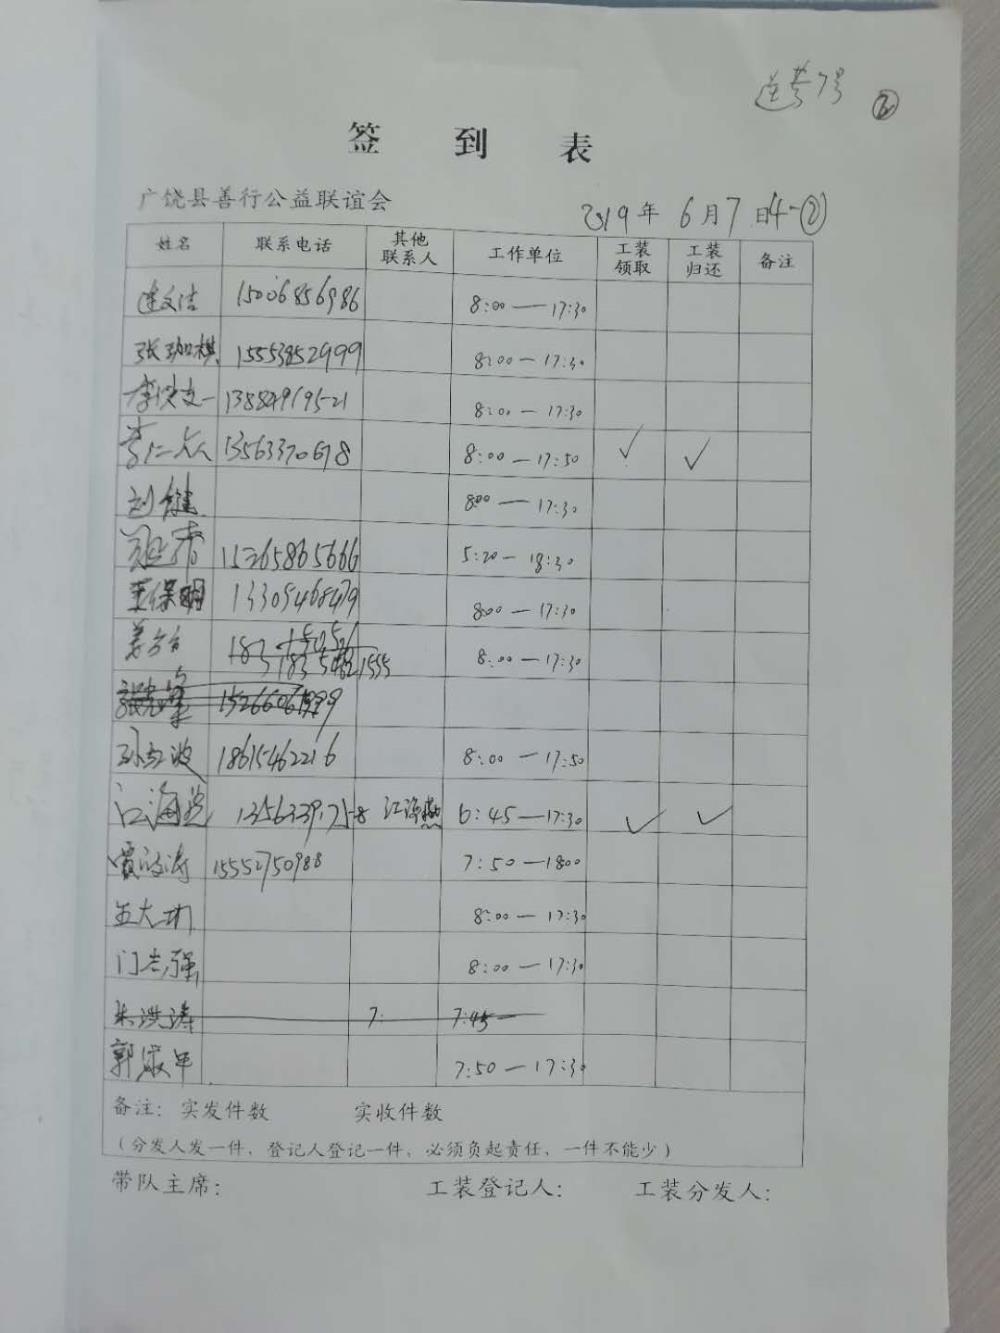 送考7号 ②
签 到 表
广饶县善行公益联谊会
2019年 6月7日 4-②
姓名 联系电话 其他联系人 工作单位 工装领取 工装归还 备注
15006856986 8:00—17:30
张珈棋 15553852999 8:00—17:30
8:00—17:30
13563370678 8:00—17:30 ✓ ✓
刘健 8:00—17:30
15265865666 5:20—18:30
王保明 13305468479 8:00—17:30
姜方方 8:00—17:30
孙红波 18615462216 8:00—17:50
江海燕 江海燕 6:45—17:30 ✓ ✓
15552750988 7:50—1800
王大功 8:00—17:30
门志强 8:00—17:30
朱洪涛 7: 7:45—
郭淑军 7:50—17:30
备注: 实发件数 实收件数
(分发人发一件, 登记人登记一件, 必须负起责任, 一件不能少)
带队主席: 工装登记人: 工装分发人: